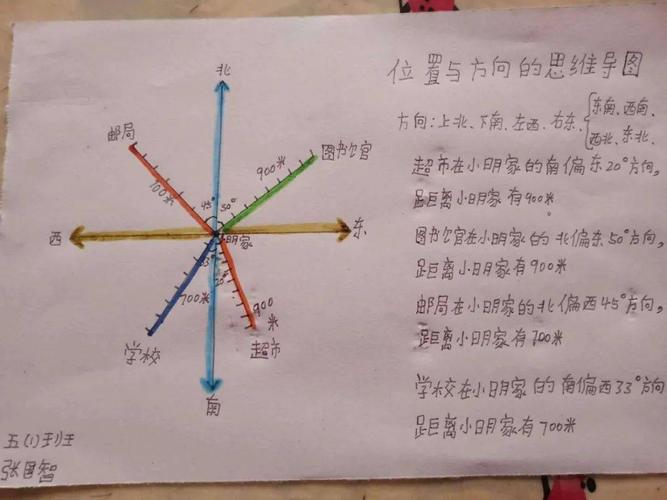 位置与方向的思维导图
方向:上北、下南、左西、右东、{东南、西南、
西北、东北、
超市在小明家的南偏东20°方向,
距离小明家有900米
图书官在小明家的北偏东50°方向,
距离小明家有900米
邮局在小明家的北偏西45°方向,
距离小明家有700米
学校在小明家的南偏西33°方向
距离小明家有700米
北
邮局
图书官
900米
700米
45°
50°
西
东
小明家
33°
20°
700米
900米
学校
超市
南
五(1)班
张国智